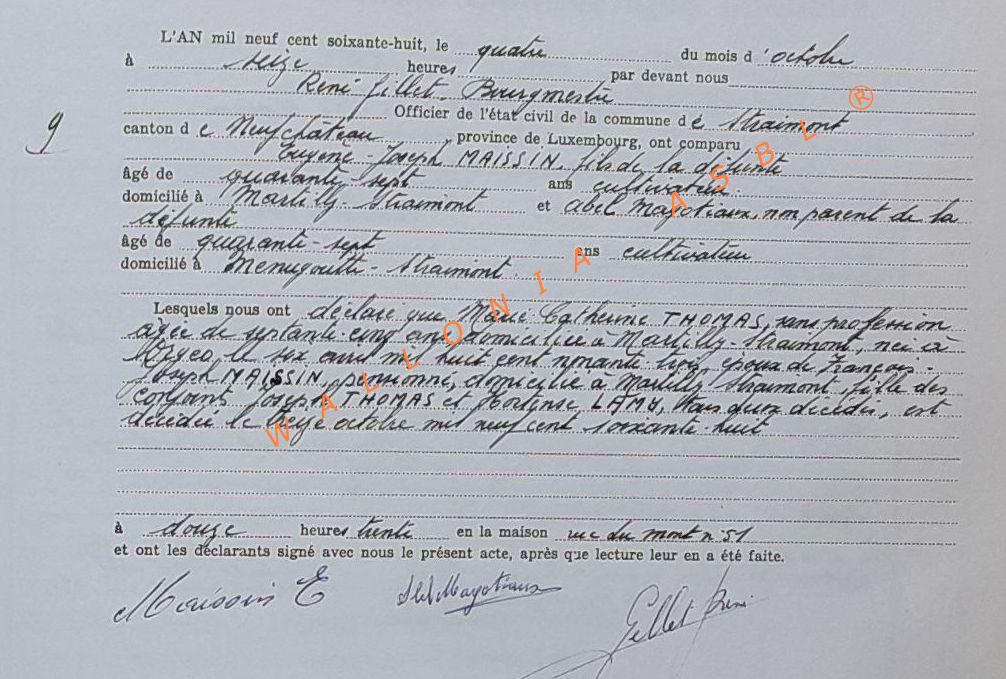 L'AN mil neuf cent soixante-huit, le quatre du mois d'octobre
à seize heures par devant nous
René Gillet, Bourgmestre
Officier de l'état civil de la commune de Straimont
9
canton de Neufchâteau province de Luxembourg, ont comparu
Eugène-Joseph MAISSIN, fils de la défunte
âgé de quarante-sept ans cultivateur
domicilié à Martilly-Straimont et Abel Magotiaux, non parent de la
défunte
âgé de quarante-sept ans cultivateur
domicilié à Menugoutte-Straimont.
Lesquels nous ont déclaré que Marie Catherine THOMAS, sans profession
âgée de septante-cinq ans domiciliée à Martilly-Straimont, née à
le six avril mil huit cent nonante trois, épouse de François-
Joseph MAISSIN, pensionné, domicilié à Martilly Straimont, fille des
conjoints Joseph THOMAS et Hortense LAMY, tous deux décédés, est
décédée le octobre mil neuf cent soixante-huit
à douze heures trente en la maison rue du mont n° 51
et ont les déclarants signé avec nous le présent acte, après que lecture leur en a été faite.
Maissin E Abel Magotiaux Gillet René
WALLONIA ASBL ®